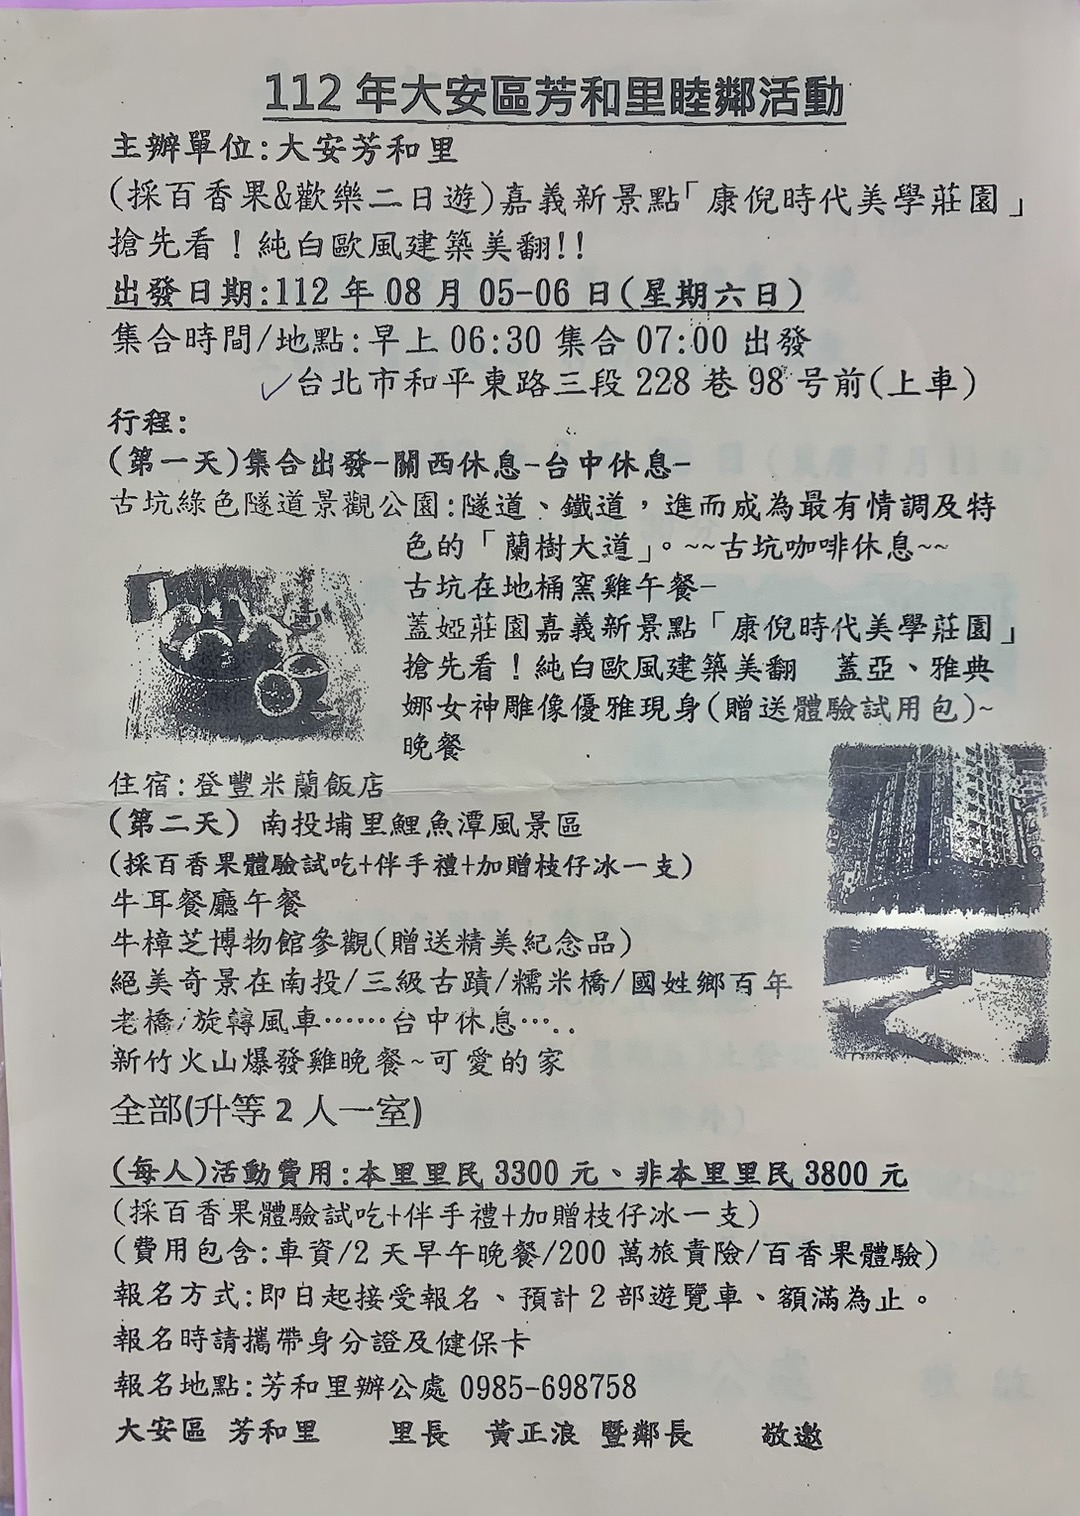 112年大安區芳和里睦鄰活動
主辦單位:大安芳和里
(採百香果&歡樂二日遊)嘉義新景點「康倪時代美學莊園」
搶先看！純白歐風建築美翻!!
出發日期:112年08月05-06日(星期六日)
集合時間/地點:早上06:30集合07:00出發
✓台北市和平東路三段228巷98号前(上車)
行程:
(第一天)集合出發-關西休息-台中休息-
古坑綠色隧道景觀公園:隧道、鐵道，進而成為最有情調及特
色的「蘭樹大道」。~~古坑咖啡休息~~
古坑在地桶窯雞午餐-
蓋婭莊園嘉義新景點「康倪時代美學莊園」
搶先看！純白歐風建築美翻 蓋亞、雅典
娜女神雕像優雅現身(贈送體驗試用包)~
晚餐
住宿:登豐米蘭飯店
(第二天) 南投埔里鯉魚潭風景區
(採百香果體驗試吃+伴手禮+加贈枝仔冰一支)
牛耳餐廳午餐
牛樟芝博物館參觀(贈送精美紀念品)
絕美奇景在南投/三級古蹟/糯米橋/國姓鄉百年
老橋/旋轉風車……台中休息…..
新竹火山爆發雞晚餐~可愛的家
全部(升等2人一室)
(每人)活動費用:本里里民3300元、非本里里民3800元
(採百香果體驗試吃+伴手禮+加贈枝仔冰一支)
(費用包含:車資/2天早午晚餐/200萬旅責險/百香果體驗)
報名方式:即日起接受報名、預計2部遊覽車、額滿為止。
報名時請攜帶身分證及健保卡
報名地點:芳和里辦公處 0985-698758
大安區 芳和里 里長 黃正浪 暨鄰長 敬邀